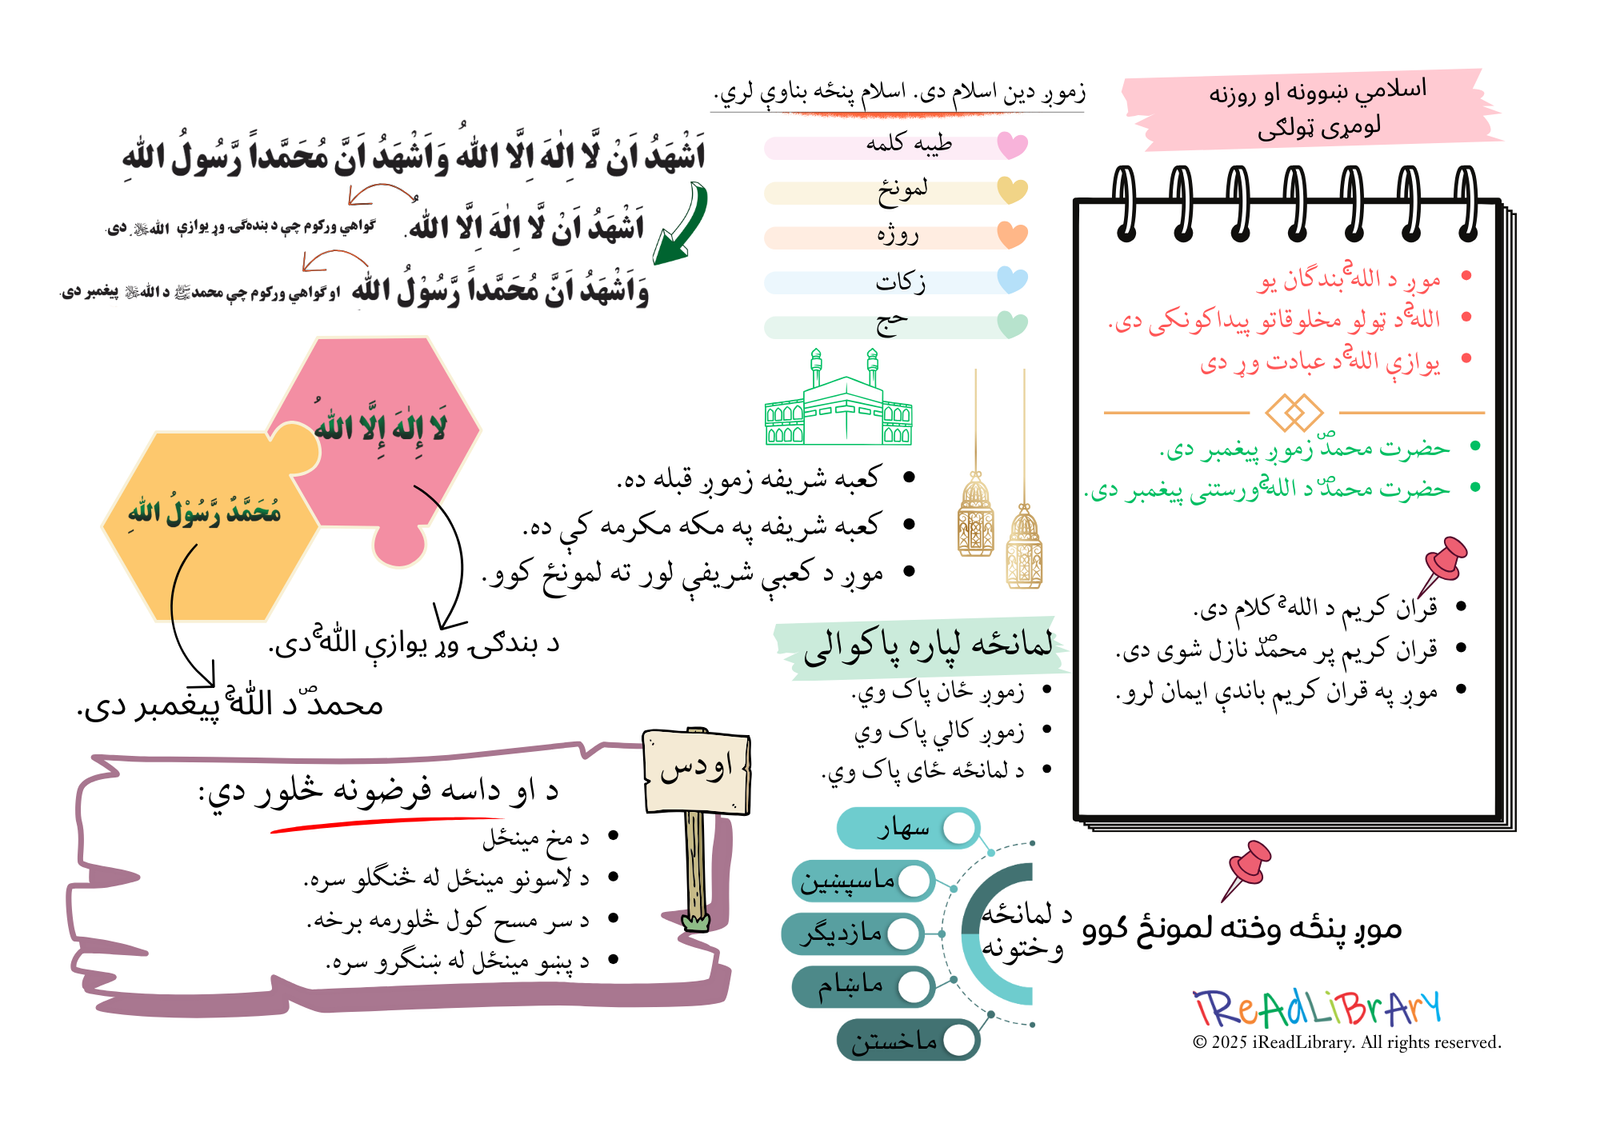 اسلامي ښوونه او روزنه
لومړی ټولګی
موږ د اللهﷻ بندګان يو
اللهﷻ د ټولو مخلوقاتو پيداکونکی دی.
يوازې اللهﷻ د عبادت وړ دی
حضرت محمدؐ زموږ پيغمبر دی.
حضرت محمدؐ د اللهﷻ ورستنی پيغمبر دی.
قران کريم د اللهﷻ کلام دی.
قران کريم پر محمدؐ نازل شوی دی.
موږ په قران کريم باندې ايمان لرو.
موږ پنځه وخته لمونځ کوو
زموږ دين اسلام دی. اسلام پنځه بناوې لري.
طيبه کلمه
لمونځ
روژه
زکات
حج
کعبه شريفه زموږ قبله ده.
کعبه شريفه په مکه مکرمه کې ده.
موږ د کعبې شريفې لور ته لمونځ کوو.
لمانځه لپاره پاکوالی
زموږ ځان پاک وي.
زموږ کالي پاک وي
د لمانځه ځای پاک وي.
د لمانځه
وختونه
سهار
ماسپښين
مازديګر
ماښام
ماخستن
اَشْهَدُ اَنْ لَّا اِلٰهَ اِلَّا اللهُ وَاَشْهَدُ اَنَّ مُحَمَّداً رَّسُولُ اللهِ
اَشْهَدُ اَنْ لَّا اِلٰهَ اِلَّا اللهُ.
ګواهي ورکوم چې د بندګۍ وړ يوازې اللهﷻ دی.
وَاَشْهَدُ اَنَّ مُحَمَّداً رَّسُوْلُ اللهِ
او ګواهي ورکوم چې محمدﷺ د اللهﷻ پيغمبر دی.
لَا إِلٰهَ إِلَّا اللهُ
مُحَمَّدٌ رَّسُوْلُ اللهِ
د بندګۍ وړ يوازې اللهﷻ دی.
محمدؐ د اللهﷻ پيغمبر دی.
اودس
د او داسه فرضونه څلور دي:
د مخ مينځل
د لاسونو مينځل له څنګلو سره.
د سر مسح کول څلورمه برخه.
د پښو مينځل له ښنګرو سره.
iReAdLiBrArY
© 2025 iReadLibrary. All rights reserved.